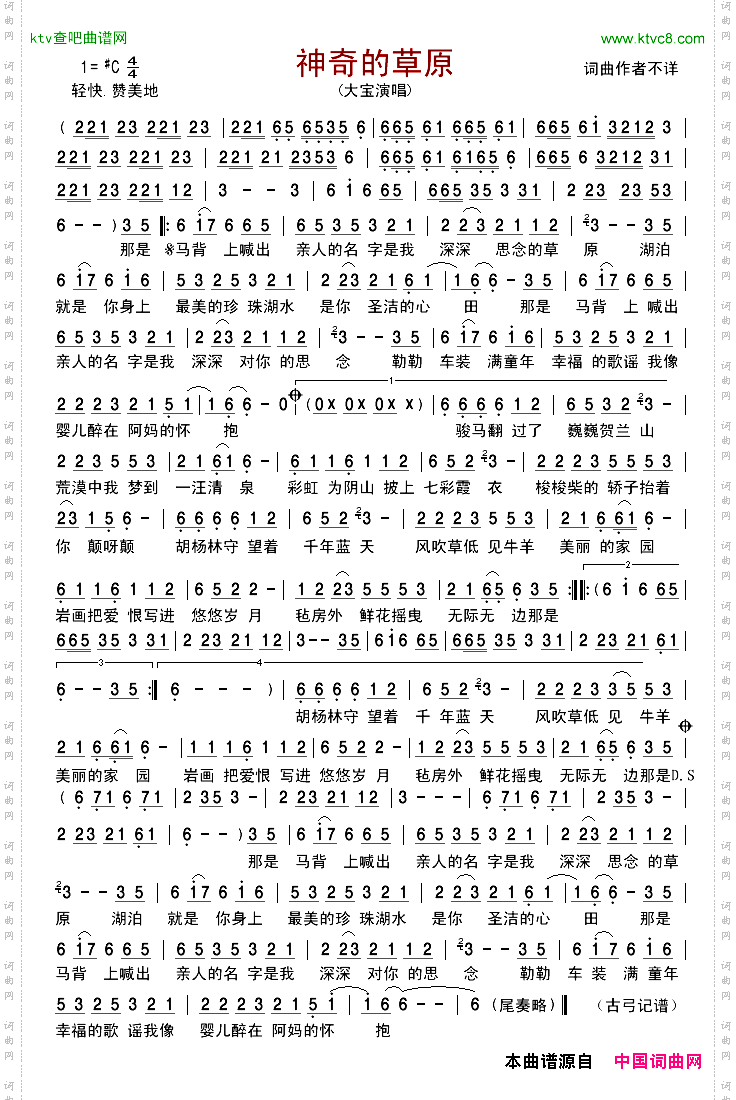 ktv查吧曲谱网
www.ktvc8.com
神奇的草原
1=#C 4/4
词曲作者不详
轻快.赞美地
(大宝演唱)
( 221 23 221 23 | 221 65 6535 6 | 665 61 665 61 | 665 61 3212 3 |
221 23 221 23 | 221 21 2353 6 | 665 61 6165 6 | 665 35 3212 31 |
221 23 221 12 | 3 - - 3 5 | 6 1 6 65 | 665 35 3 31 | 2 23 23 53 |
6 - - ) 3 5 ‖: 6 17 6 6 5 | 6 5 3 5 3 2 1 | 2 23 2 1 1 2 | 3 - - 3 5 |
那是 𝄋马背 上喊出 亲人的名 字是我 深深 思念的草 原 湖泊
6 17 6 1 6 | 5 3 2 5 3 2 1 | 2 23 2 1 6 1 | 1 6 6 - 3 5 | 6 17 6 6 5 |
就是 你身上 最美的珍 珠湖水 是你 圣洁的心 田 那是 马背 上喊出
6 5 3 5 3 2 1 | 2 23 2 1 1 2 | 3 - - 3 5 | 6 17 6 1 6 | 5 3 2 5 3 2 1 |
亲人的名 字是我 深深 对你 的思 念 勒勒 车装 满童年 幸福 的歌谣 我像
1
2 2 2 3 2 1 5 1 | 1 6 6 - 0 | (0X 0X 0X 0X) | 6 6 6 1 1 2 | 6 5 3 2 3 - |
婴儿醉在 阿妈的怀 抱 骏马翻 过了 巍巍贺兰 山
2 2 3 5 3 2 3 | 2 1 6 1 6 - | 6 1 1 6 1 1 2 | 6 5 2 3 - | 2 2 2 3 5 5 3 |
荒漠中我 梦到 一汪清 泉 彩虹 为阴山 披上 七彩霞 衣 梭梭柴的 轿子抬着
23 1 5 6 - | 6 6 6 6 1 2 | 6 5 2 3 - | 2 2 2 3 5 5 3 | 2 1 6 61 6 - |
你 颠呀颠 胡杨林守 望着 千年蓝 天 风吹草低 见牛羊 美丽 的家 园
2
6 1 1 6 1 1 2 | 6 5 2 3 - | 1 2 23 5 5 5 3 | 2 1 6 5 6 3 5 :‖: (6 1 6 65 |
岩画把爱 恨写进 悠悠岁 月 毡房外 鲜花摇曳 无际无 边那是
665 35 3 31 | 2 23 21 12 | 3 - - 35 | 61 6 65 | 665 35 3 31 | 2 23 21 61 |
3 4
6 - - 3 5 :‖ 6 - - - ) | 6 6 6 6 1 2 | 6 5 2 3 - | 2 2 2 3 3 5 5 3 |
胡杨林守 望着 千 年蓝 天 风吹草低 见 牛羊
2 1 6 61 6 - | 1 1 1 6 1 1 2 | 6 5 2 3 - | 1 2 23 5 5 5 3 | 2 1 65 6 3 5 |
美丽的家 园 岩画 把爱恨 写进 悠悠岁 月 毡房外 鲜花摇曳 无际无 边那是D.S
( 6 71 6 71 | 2 35 3 - | 2 23 21 12 | 3 - - - | 6 71 6 71 | 2 35 3 - |
2 23 21 61 | 6 - - ) 3 5 | 6 17 6 6 5 | 6 5 3 5 3 2 1 | 2 23 2 1 1 2 |
那是 马背 上喊出 亲人的名 字是我 深深 思念 的草
3 - - 3 5 | 6 17 6 1 6 | 5 3 2 5 3 2 1 | 2 23 2 1 6 1 | 1 6 6 - 3 5 |
原 湖泊 就是 你身上 最美的珍 珠湖水 是你 圣洁的心 田 那是
6 17 6 6 5 | 6 5 3 5 3 2 1 | 2 23 2 1 1 2 | 3 - - 3 5 | 6 17 6 1 6 |
马背 上喊出 亲人的名 字是我 深深 对你 的思 念 勒勒 车 装 满 童年
5 3 2 5 3 2 1 | 2 2 2 3 2 1 5 1 | 1 6 6 - - | 6 (尾奏略) ‖ (古弓记谱)
幸福的歌 谣我像 婴儿醉在 阿妈的怀 抱
本曲谱源自 中国词曲网